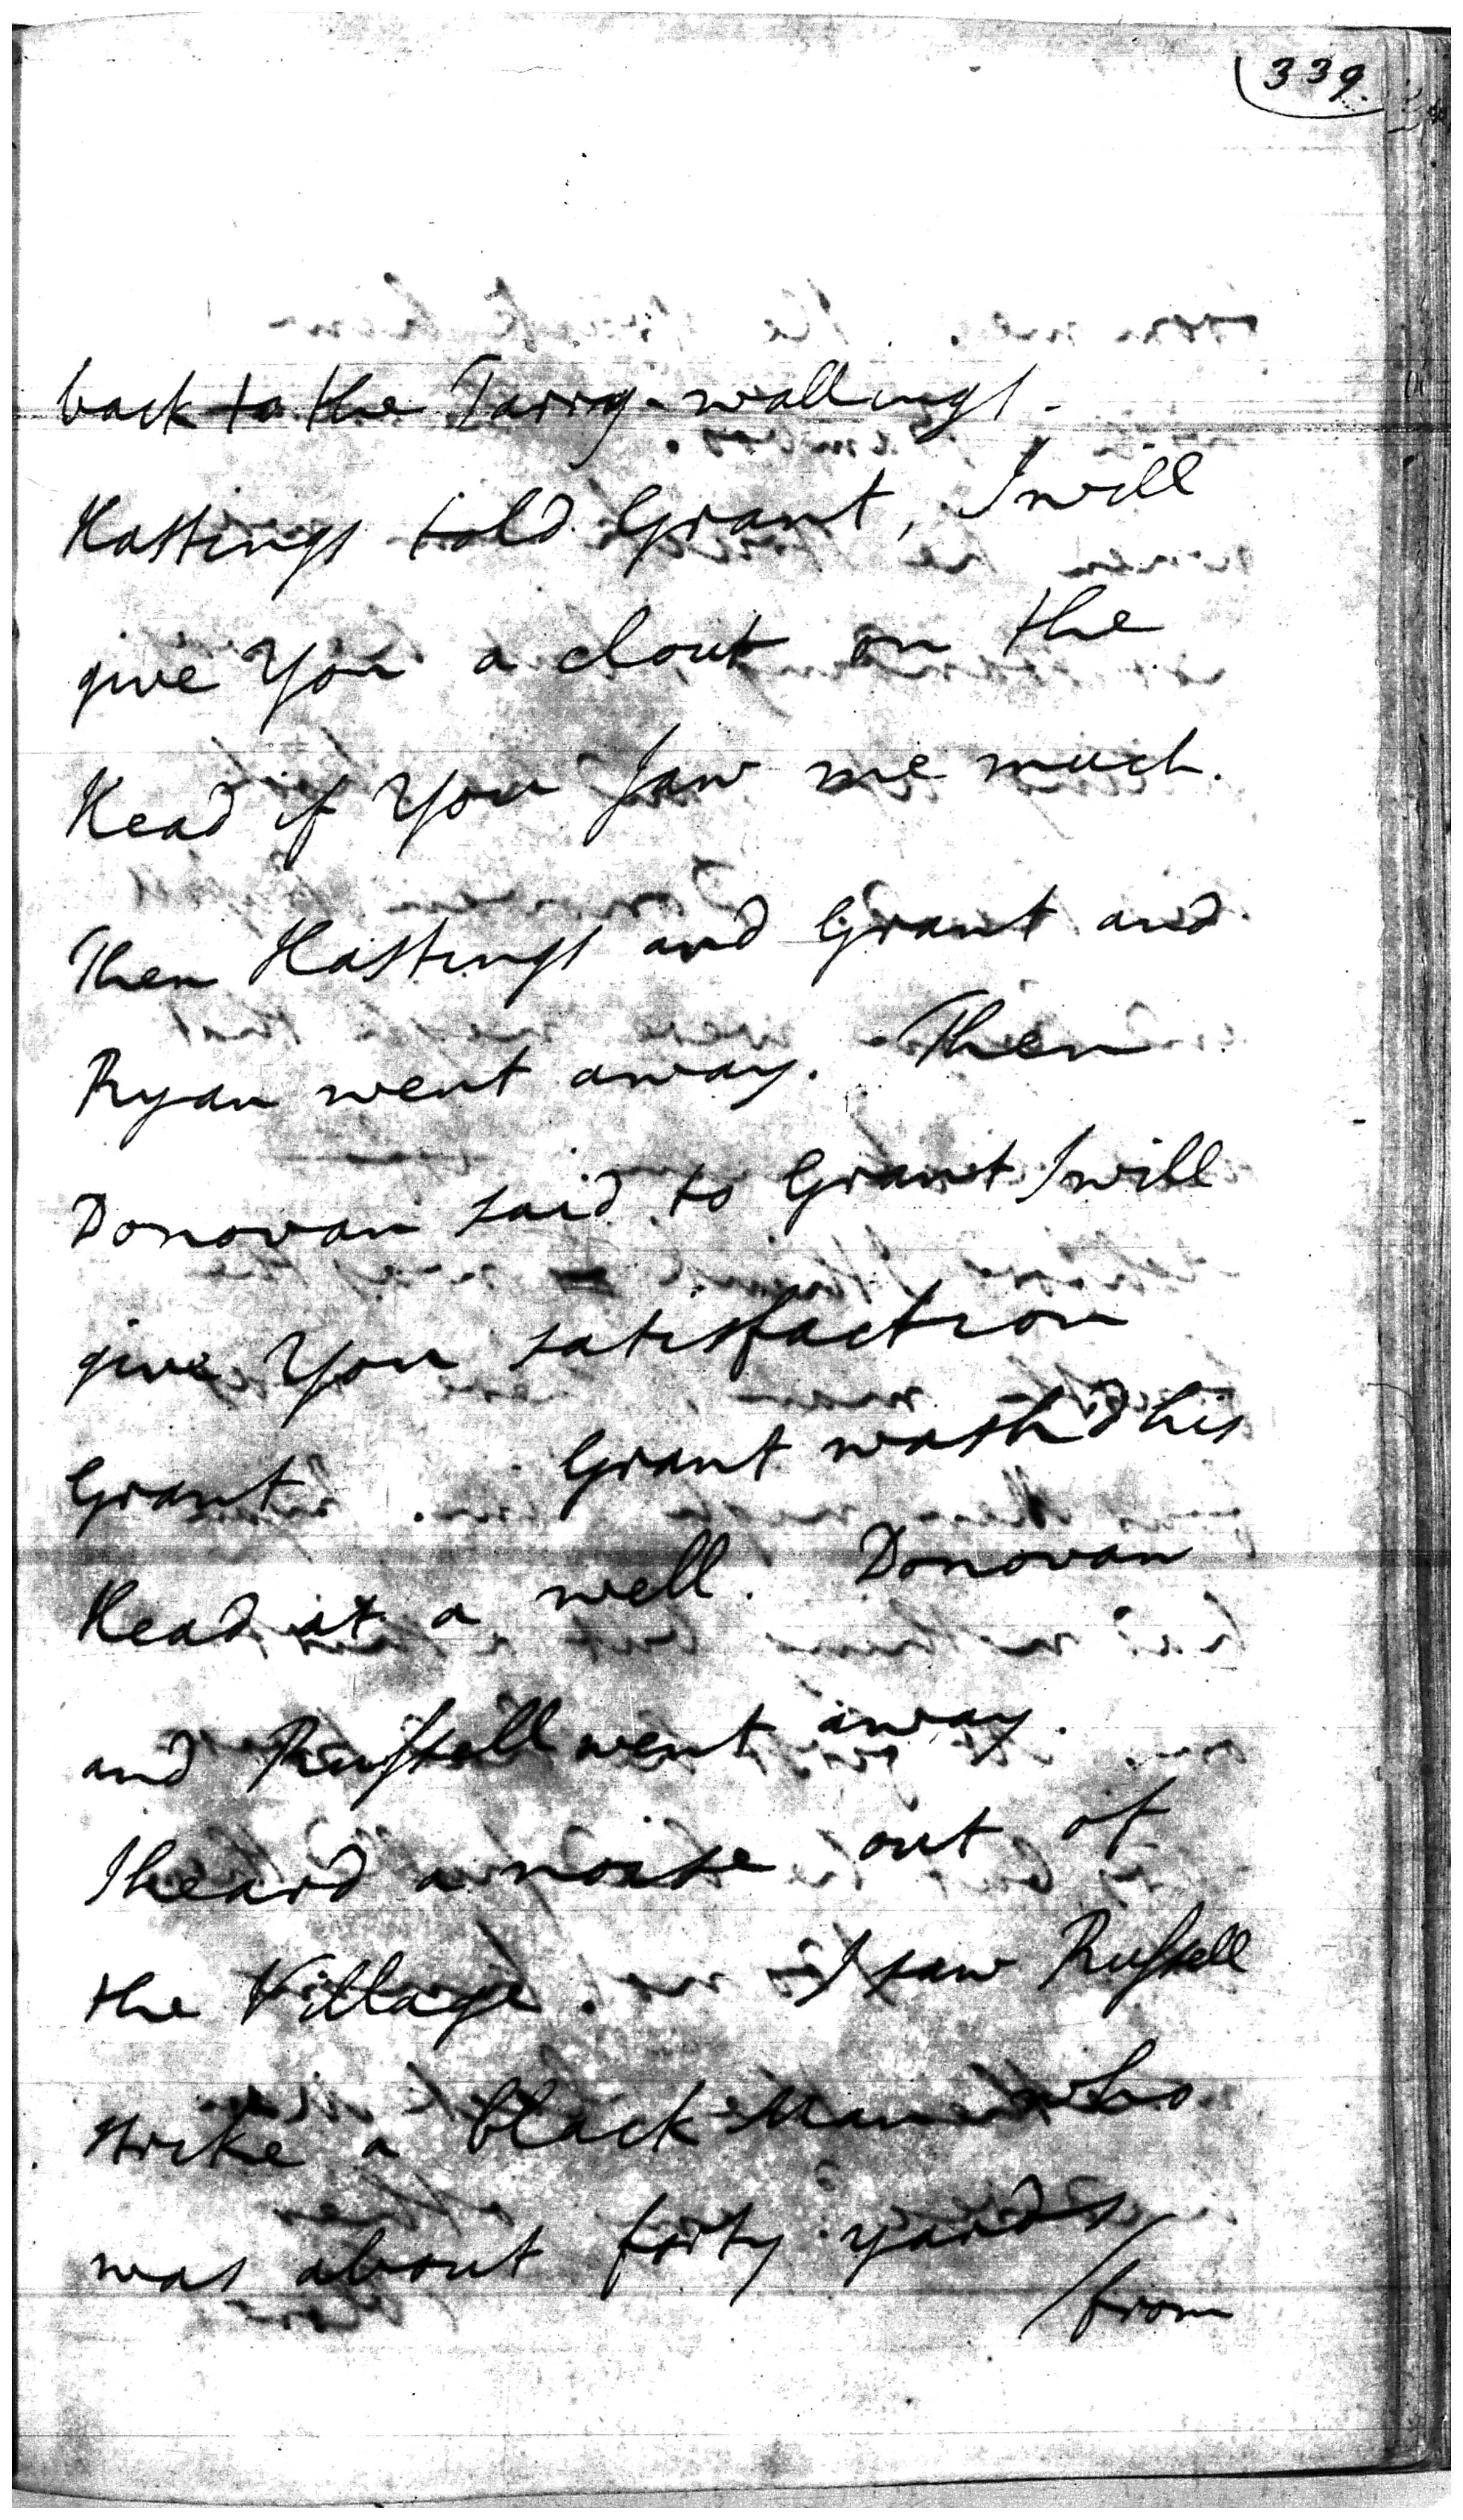 339.
back to the wallings.
Hastings told Grant, I will
give You a clout on the
Head if You Jaw me much.
Then Hastings and Grant and
Ryan went away. Then
Donovan said to Grant I will
give You satisfaction
Grant Grant wash'd his
Head at a well. Donovan
and Russell went away.
I heard a noise out of
the Village. I saw Russell
strike a black Man who
was about forty yards
/from